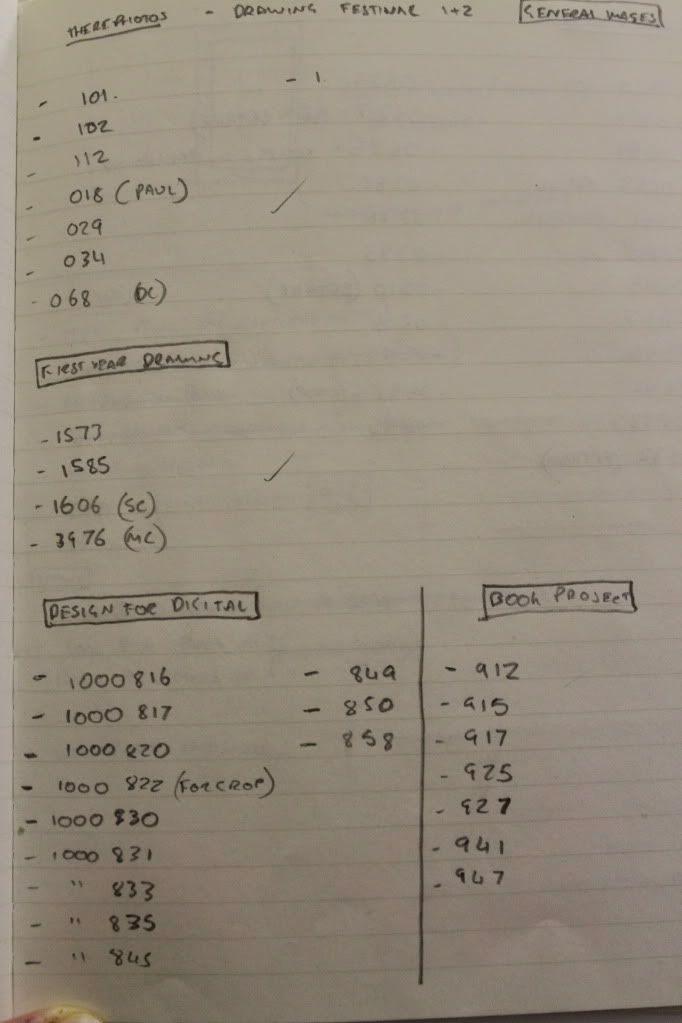 THERE PHOTOS - DRAWING FESTIVAL 1+2 GENERAL IMAGES
- 1.
- 101.
- 102
- 112
- 018 (PAUL)
- 029
- 034
- 068 (DC)
FIRST YEAR DRAWING
- 1573
- 1585
- 1606 (SC)
- 3976 (MC)
DESIGN FOR DIGITAL
- 1000 816
- 1000 817
- 1000 820
- 1000 822 (FOR CROP)
- 1000 830
- 1000 831
- " 833
- " 835
- " 845
- 849
- 850
- 858
BOOK PROJECT
- 912
- 915
- 917
- 925
- 927
- 941
- 947